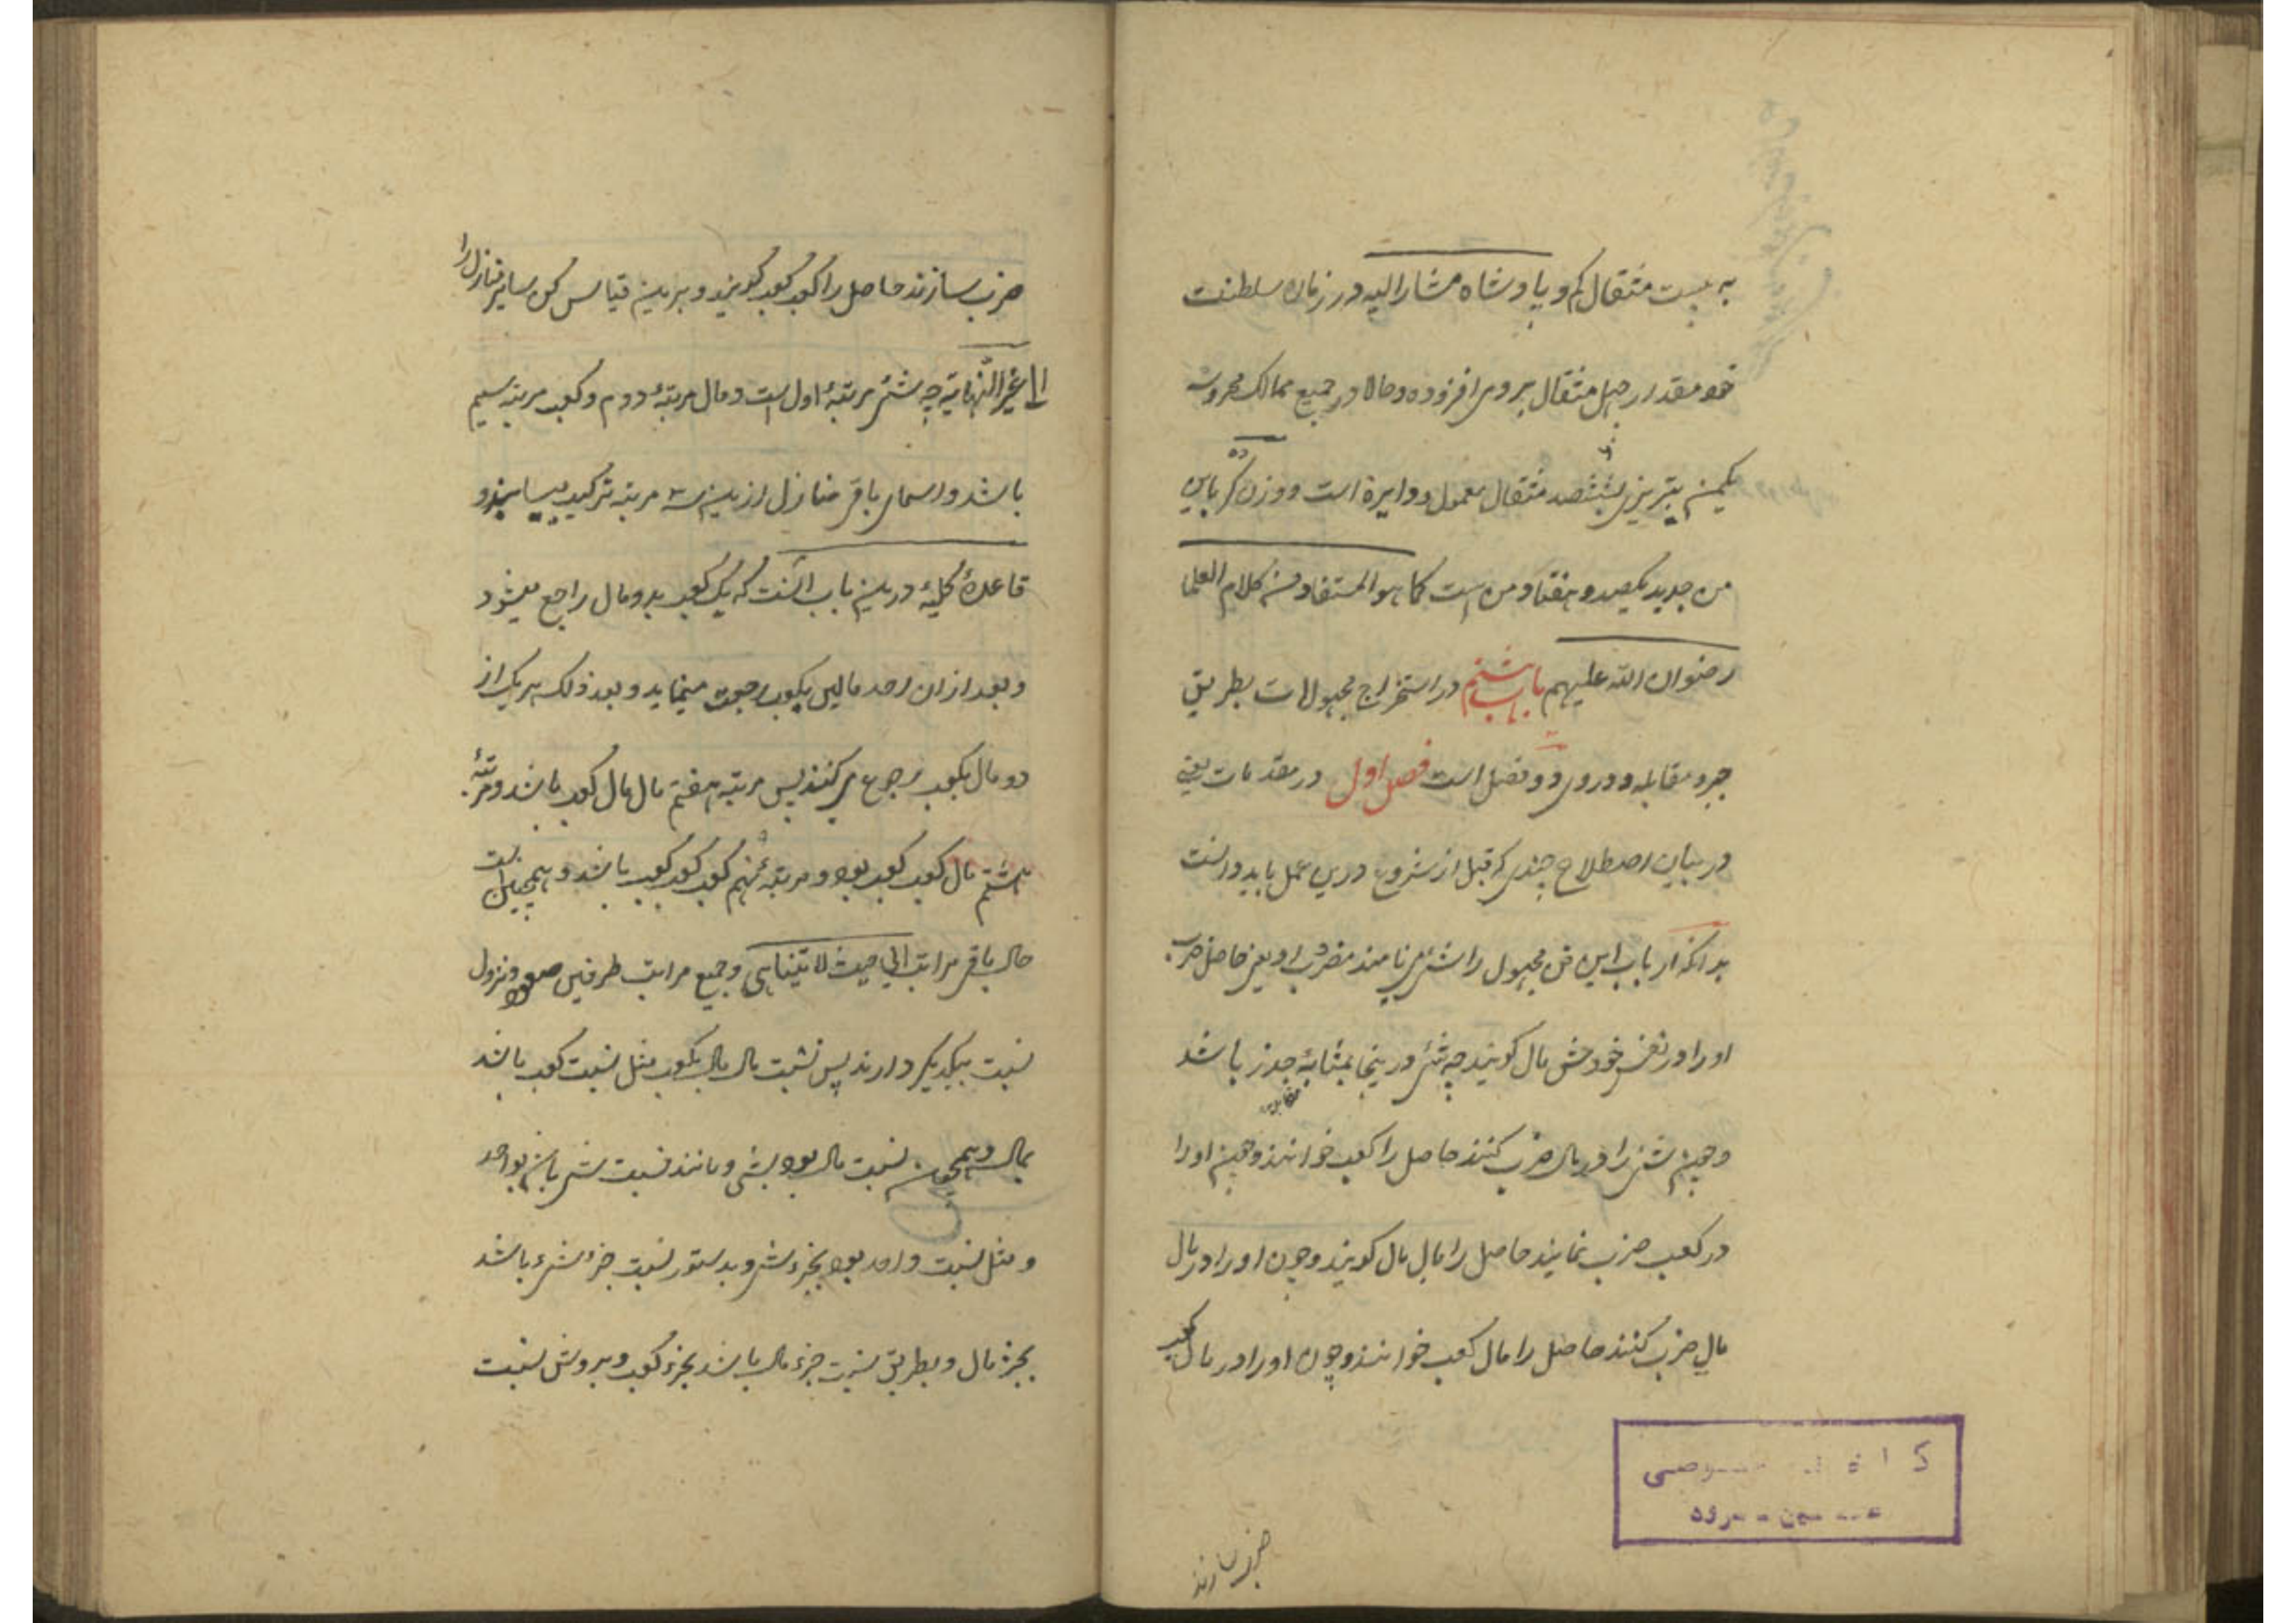 به بیست مثقال کم و پادشاه مشارالیه در زمان سلطنت
خود مقدار چهل مثقال بروی افزوده و حالا در جمیع ممالک محروسه
یکمن تبریزی ششصد مثقال معمول و دایره است و وزن کر باین
من جدید یکصد و هفتاد من است کما هو المستفاد من کلام العلما
رضوان الله علیهم باب هشتم در استخراج مجهولات بطریق
جبر و مقابله و در وی دو فصل است فصل اول در مقدمات یعنی
در بیان اصطلاح چندی که قبل از شروع درین عمل باید دانست
بدانکه ارباب این فن مجهول را شئ می نامند و مضروب او یعنی حاصل ضرب
او را در نفس خودش مال کویند چه شئ در ینجا بمثابهٔ جذر باشد
و چون شئ را در مال ضرب کنند حاصل را کعب خوانند و چون او را
در کعب ضرب نمایند حاصل را مال مال کویند و چون او را در مال
مال ضرب کنند حاصل را مال کعب خوانند و چون او را در مال کعب
ضرب سازند
ضرب سازند حاصل را کعب کعب کویند و برین قیاس کن سایر منازل را
الی غیر النهایة چه شئ مرتبهٔ اول است و مال مرتبهٔ دوم و کعب مرتبه سیم
باشد و اسمای باقی منازل ازین سه مرتبه ترکیب مییابند و
قاعدهٔ کلیه درین باب آنست که یک کعب بدو مال راجع میشود
و بعد از ان احد مالین بکعب رجعت مینماید و بعد ذلک هر یک از
دو مال بکعب رجوع می کنند پس مرتبه هفتم مال مال کعب باشد و مرتبهٔ
هشتم مال کعب کعب بود و مرتبهٔ نهم کعب کعب کعب باشد و همچنین است
حال باقی مراتب الی حیث لا یتناهی و جمیع مراتب طرفین صعود و نزول
نسبت بیکدیکر دارند پس نسبت مال مال بکعب مثل نسبت کعب باشد
بمال و همچون نسبت مال بود بشئ و مانند نسبت شئ باشد بواحد
و مثل نسبت واحد بود بجزء شئ و بدستور نسبت جزء شئ باشد
بجزء مال و بطریق نسبت جزء مال باشد بجزء کعب و بروش نسبت